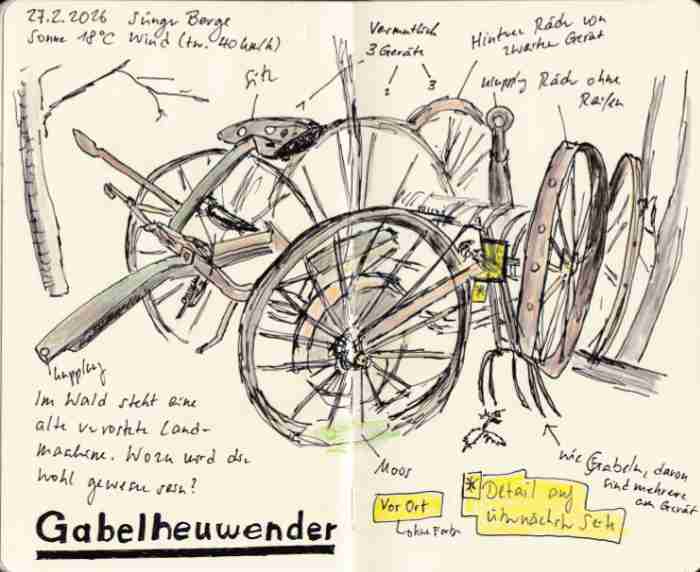 27.2.2026
Sonne 18°C Wind (tw. 40 km/h)
Vermutlich
3 Geräte
2 3
Hintere Räder von
zweiten Gerät
Räder ohne
Reifen
Sitz
1
Kupplung
Im Wald steht eine
alte verrostete Land-
maschine. Wozu wird die
wohl gewesen sein?
Gabelheuwender
Moos
Vor Ort
ohne Farbe
*
* Detail auf
übernächster Seite
wie Gabeln, davon
sind mehrere
am Gerät